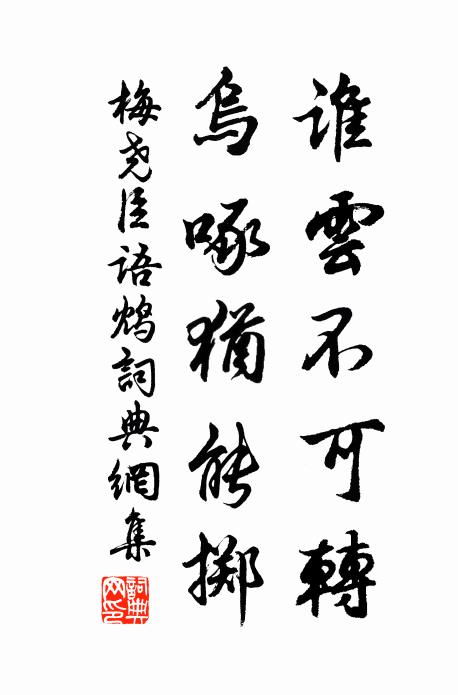 誰雲不可轉
烏啄猶能擲
梅尧臣語鴆詞典網集
詞典
网印